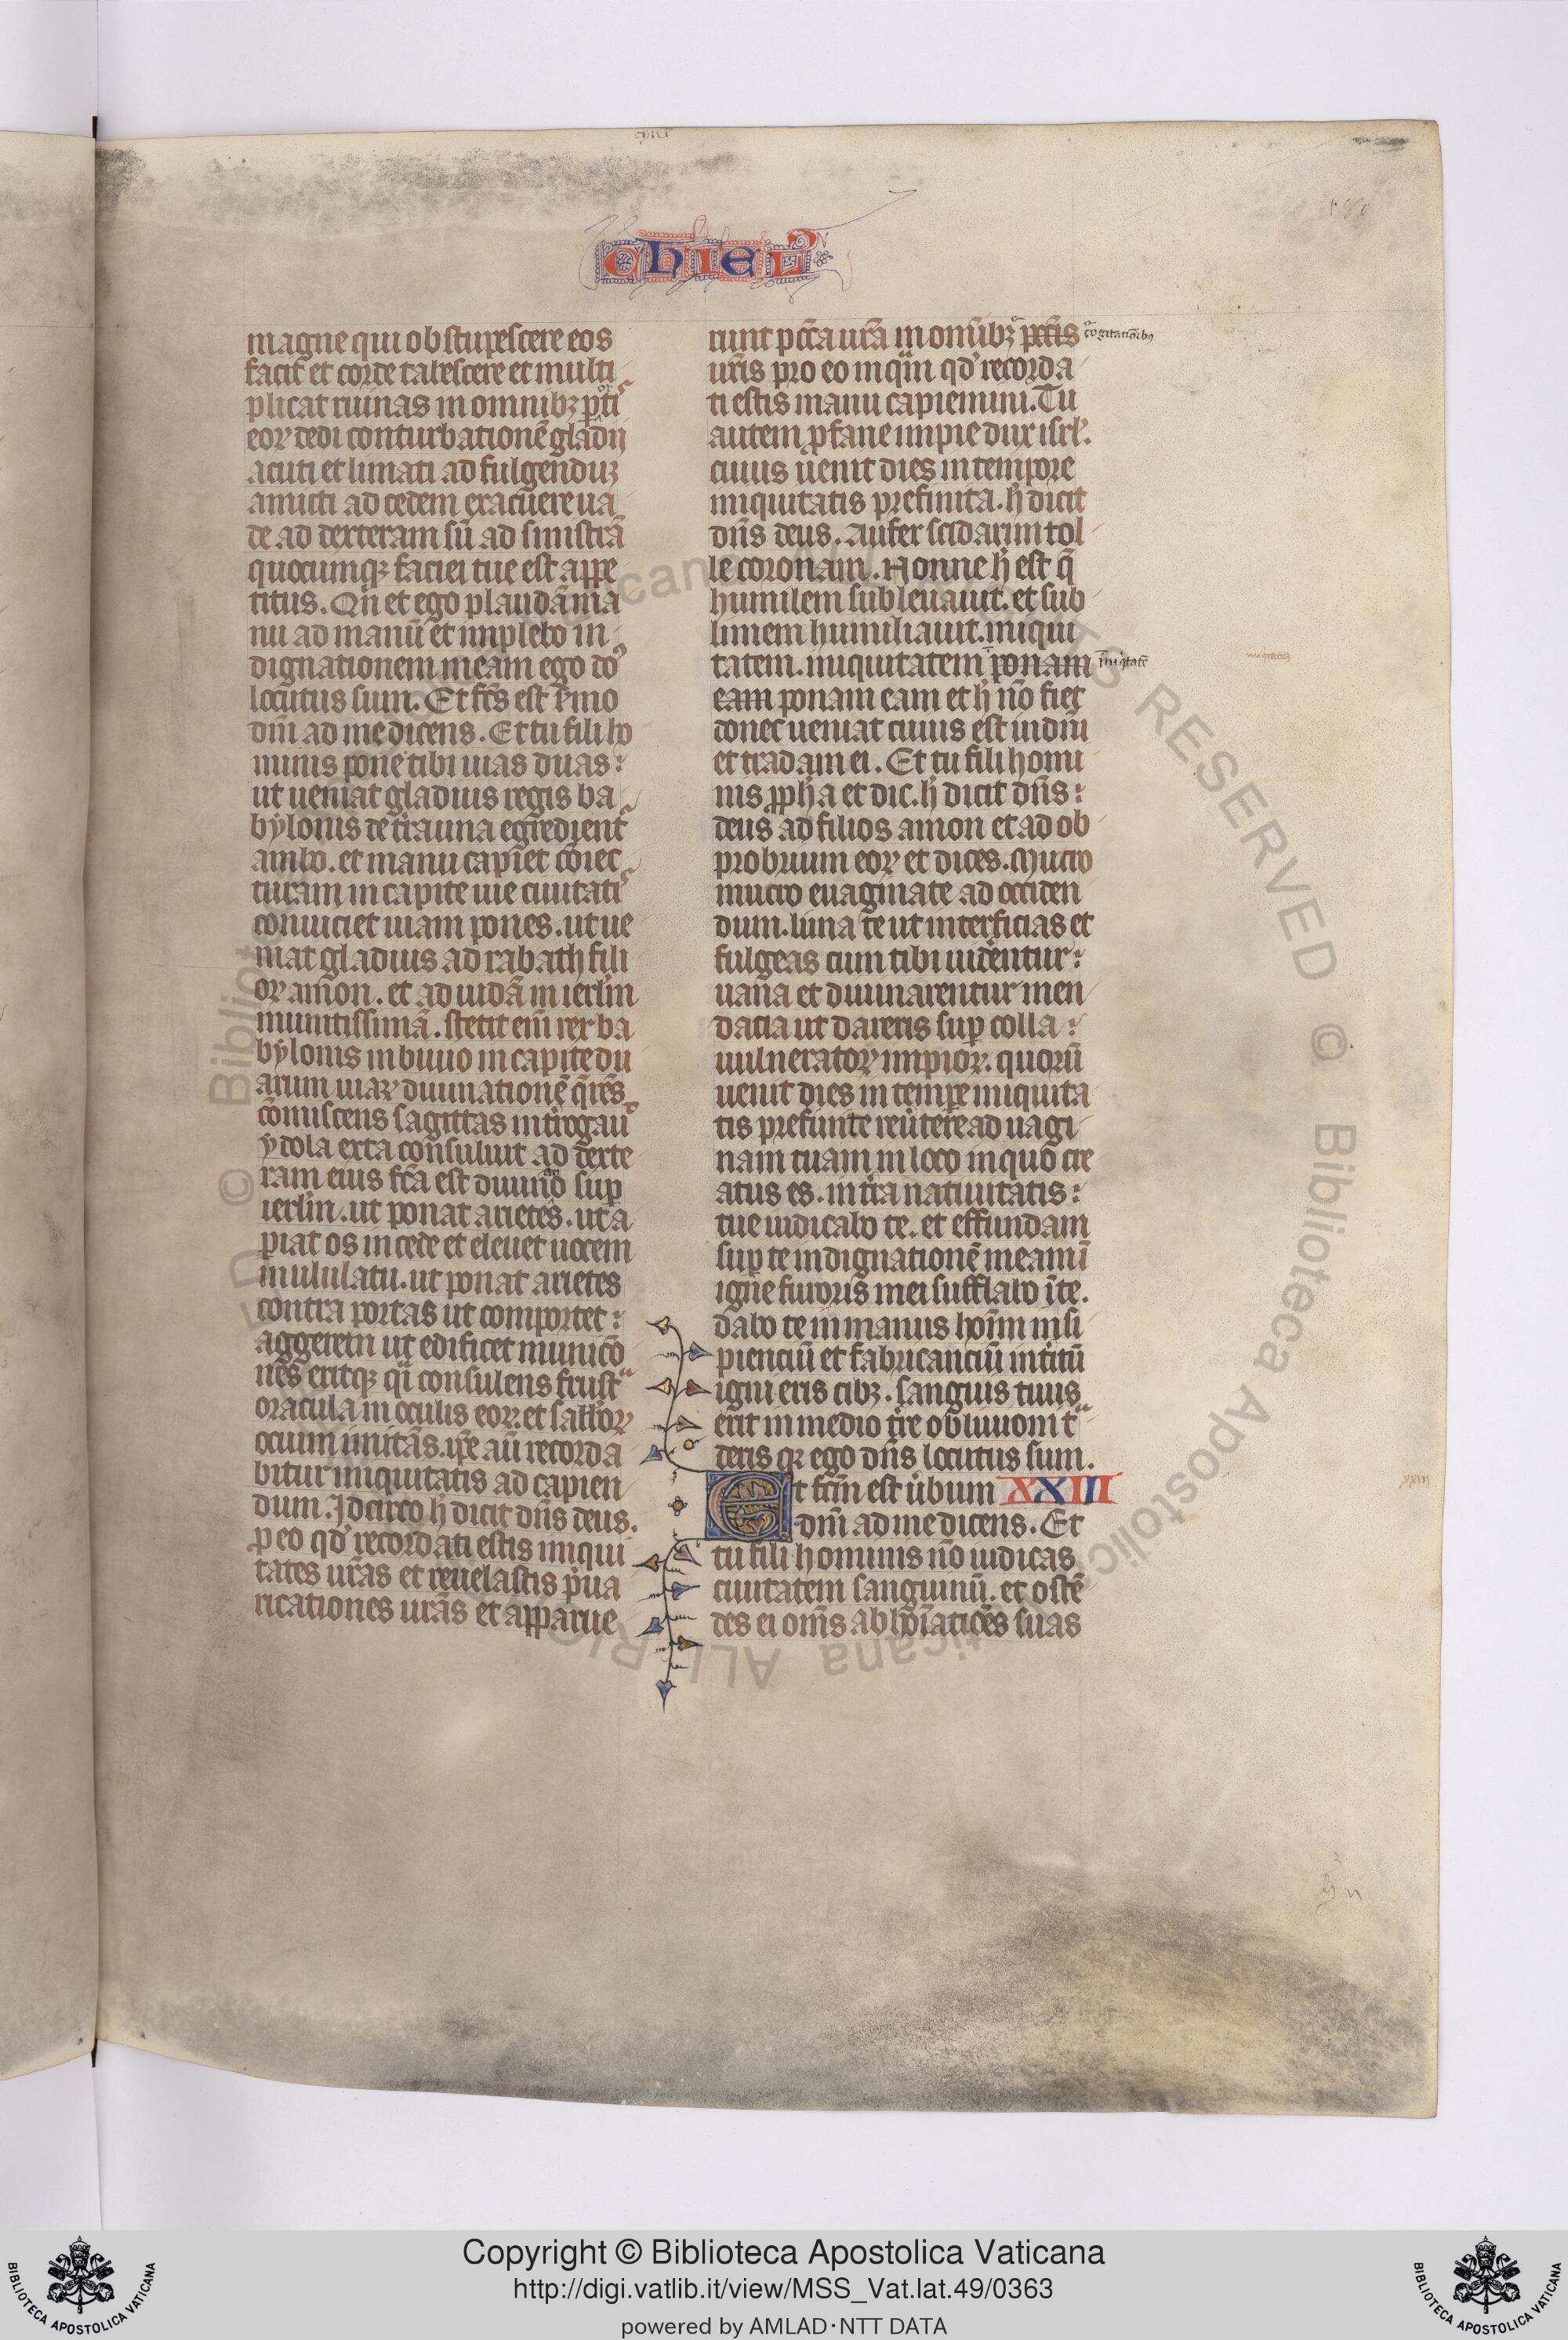 chiel
magne qui obstupescere eos
facit et corde tabescere et multi
plicat ruinas in omnibꝫ portis
eoꝝ dedi conturbationē gladii
acuti et limati ad fulgenduꝫ
amicti ad cedem exacuere ua
de ad dexteram siū ad sinistrā
quocumqꝫ faciei tue est appe
titus. Qn̄ et ego plaudā ma
nu ad manū et implebo in
dignationem meam ego do᷒
locutus sum. Et fc̄s est s̄mo
dn̄i ad me dicens. Et tu fili ho
minis pone tibi uias duas
ut ueniat gladius regis ba
bylonis de tr̄a una egredient᷑
ambo. et manu capiet cōiec
turam in capite uie ciuitatis
conuiciet uiam pones. ut ue
niat gladius ad rabath fili
oꝝ amon. et ad iudā in ierl̄m
munitissimā. stetit eni̅ rex ba
bylonis in biuio in capite du
arum uiaꝝ diuinationē q̄rēs
cōmiscens sagittas int̄rogauit
ydola exta consuluit ad dexte
ram eius fc̄a est diuinō suꝑ
ierl̄m. ut ponat arietes. ut a
piat os in cede et eleuet uocem
in ululatu. ut ponat arietes
contra portas ut comportet
aggerem ut edificet municō
nes eritqꝫ qi̅ consulens frustᵃ
oracula in oculis eoꝝ. et sabb̄oꝝ
ocium imitās. ip̄e aū recorda
bitur iniquitatis ad capien
dum. Idcirco h̄ dicit dn̄s deus.
ꝓ eo qd̓ recordati estis iniqui
tates ur̄as et reuelastis p̄ua
ricationes ur̄as et apparue
runt pc̄ca ur̄a in omībꝫ pc̄c̄is cogitationibus
ur̄is pro eo inqi̅n qd̓ recorda
ti estis manu capiemini. Tu
autem ꝓfane impie dux isrl̄.
cuius uenit dies in tempore
iniquitatis prefinita. h̄ dicit
dn̄s deus. Aufer scidarim tol
le coronam. Nonne h̄ est q̄
humilem subleuauit. et sub
limem humiliauit. iniqui
tatem. iniquitatem ponam iniq̇tatē
eam ponam eam et h̄ nō fiet
donec ueniat cuius est iudm̄
et tradam ei. Et tu fili homi
nis ꝓph̄a et dic. h̄ dicit dn̄s
deus ad filios amon et ad ob
probrium eoꝝ et dices. Mucro
mucro euaginate ad occiden
dum. lima te ut interficias et
fulgeas cum tibi uidentur
uana et diuinarentur men
dacia ut dareris suꝑ colla
uulneratoꝝ impioꝝ. quorū
uenit dies in temꝑe iniquita
tis prefinite reūtere ad uagi
nam tuam in loco in quo cre
atus es. in tr̄a natiuitatis
tue iudicabo te. et effundam
suꝑ te indignationē meam ī
igne furoris mei sufflabo ī te.
dabo te in manus hoīm insi
pienciū et fabricanciū int̄itū
igni eris cibꝫ. sanguis tuus
erit in medio tr̄e obliuioni tᵃ
deris qꝛ ego dn̄s locutus sum.
Et fc̄m est ūbum XXII
dn̄i ad me dicens. Et
tu fili hominis nō iudicas
ciuitatem sanguinū. et ostē
des ei om̄s abhoīatiōes suas
xxiii
Copyright © Biblioteca Apostolica Vaticana
http://digi.vatlib.it/view/MSS_Vat.lat.49/0363
powered by AMLAD·NTT DATA
BIBLIOTECA APOSTOLICA VATICANA
BIBLIOTECA APOSTOLICA VATICANA